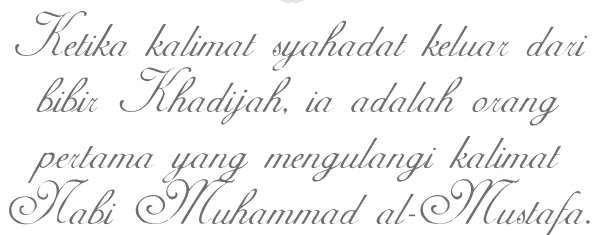 Ketika kalimat syahadat keluar dari
bibir Khadijah, ia adalah orang
pertama yang mengulangi kalimat
Nabi Muhammad al-Mustafa.